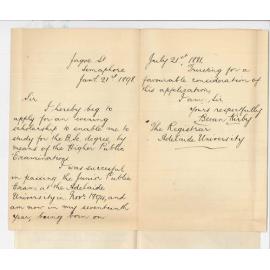 Jagoe St
Semaphore
Jan. 21st 1898
Sir
I hereby beg to
apply for an evening
scholarship to enable me to
study for the B.Sc. degree, by
means of the Higher Public
Examinations.
I was succesful
in passing the Junior Public
Exam. at the Adelaide
University in Nov. 1894, and
am now in my seventeenth
year, being born on
July 21st 1881.
Trusting for a
favourable consideration of
this application
I am Sir
Yours respectfully
Kirby
The Registrar
Adelaide University